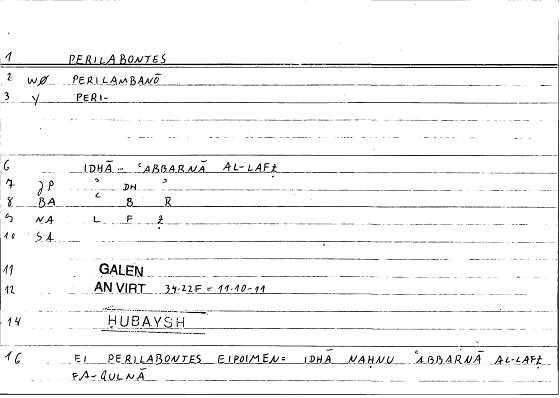 1 PERILABONTES
2 WØ PERILAMBANŌ
3 Y PERI-
6 IDHĀ... ʿABBARNĀ AL-LAFẒ
7 JP ʾ DH ʾ
8 BA ʿ B R
9 NA L F Ẓ
10 SA
11 GALEN
12 AN VIRT 34.22F = 11.10-11
14 ḤUBAYSH
16 EI PERILABONTES EIPOIMEN = IDHĀ NAḤNU ʿABBARNĀ AL-LAFẒ
FA-QULNĀ